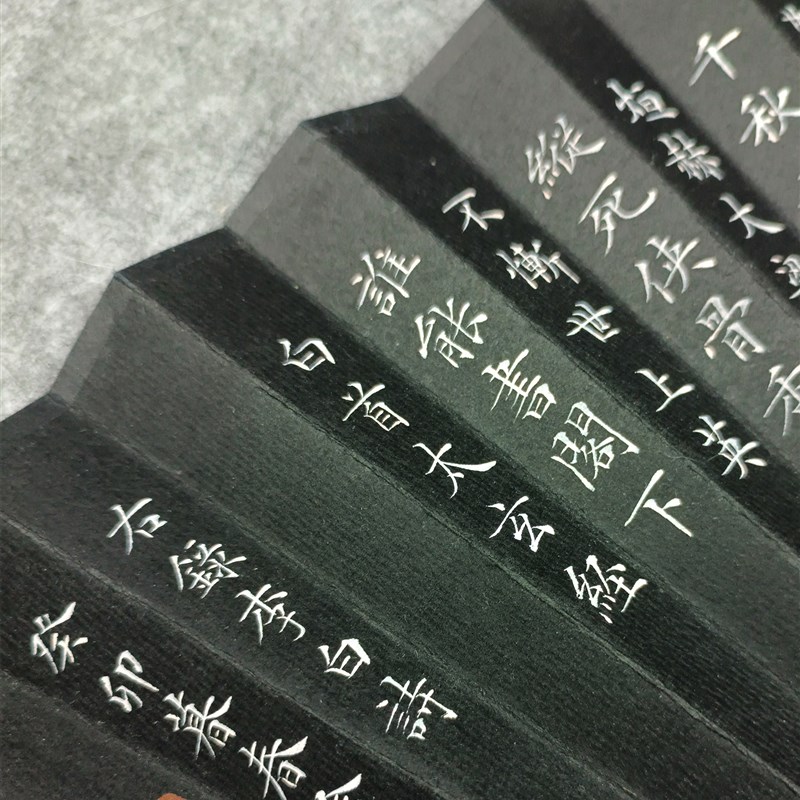 千秋
烜赫大
縱死俠骨香
不慚世上英
誰能書閣下
白首太玄經
右錄李白詩
癸卯暮春